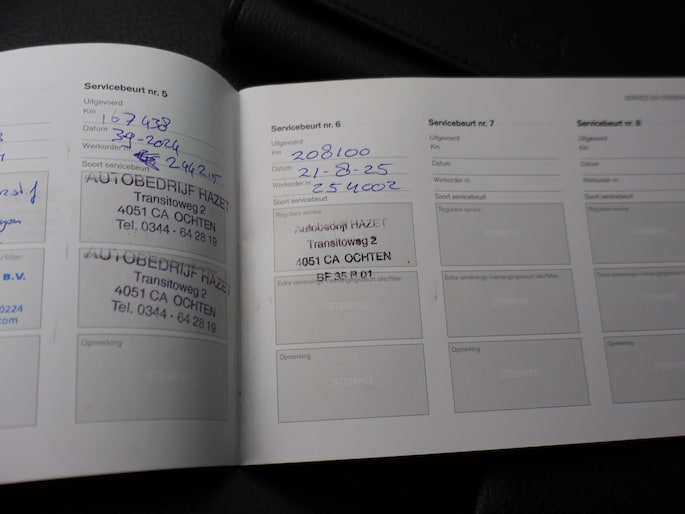 B.V.
0224
com
Servicebeurt nr. 5
Uitgevoerd
Km 167438
Datum 3-9-2024
Werkorder nr. 244215
Soort servicebeurt
AUTOBEDRIJF HAZET
Transitoweg 2
4051 CA OCHTEN
Tel. 0344 - 64 28 19
AUTOBEDRIJF HAZET
Transitoweg 2
4051 CA OCHTEN
Tel. 0344 - 64 28 19
Opmerking
STEMPEL
Servicebeurt nr. 6
Uitgevoerd
Km 208100
Datum 21-8-25
Werkorder nr. 254002
Soort servicebeurt
Reguliere service
Autobedrijf HAZET
Transitoweg 2
4051 CA OCHTEN
BF 35 R 01
STEMPEL
Opmerking
STEMPEL
Servicebeurt nr. 7
Uitgevoerd
Km
Datum
Werkorder nr.
Soort servicebeurt
Reguliere service
STEMPEL
STEMPEL
Opmerking
STEMPEL
Servicebeurt nr. 8
Uitgevoerd
Km
Datum
Werkorder nr.
Soort servicebeurt
Reguliere service
Opmerking